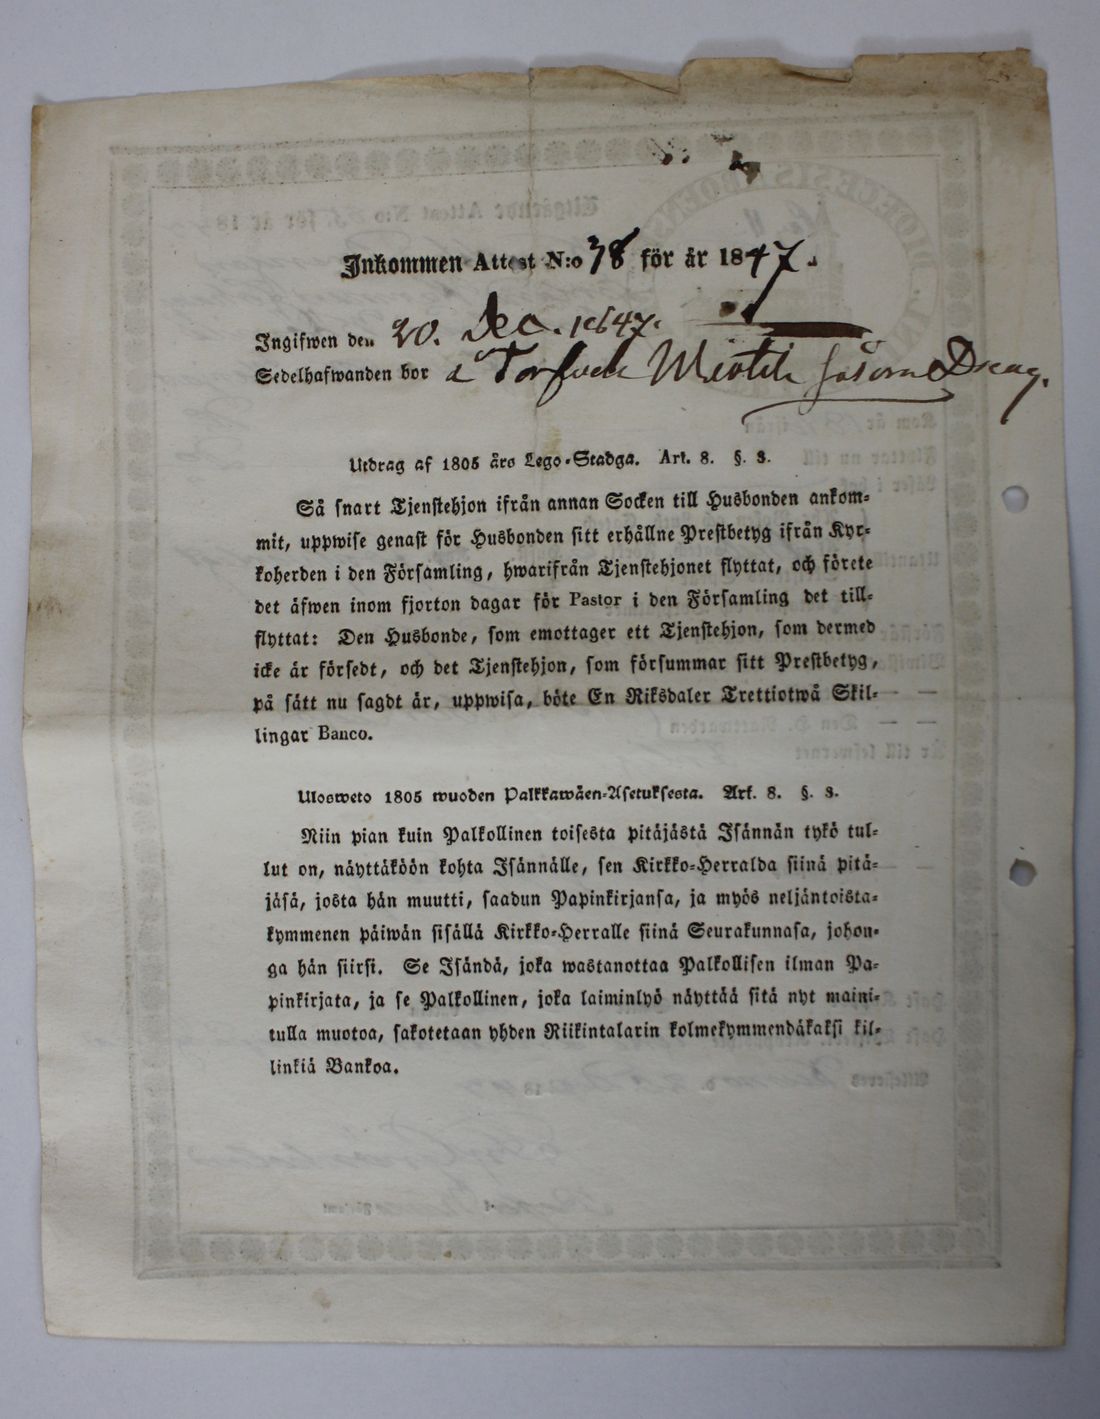 Inkommen Attest N:o 38 för år 1847.
Ingifwen den 20. Dec. 1847.
Sedelhafwanden bor å såsom Dräng.
Utdrag af 1805 års Lego-Stadga. Art. 8. §. 3.
Så snart Tjenstehjon ifrån annan Socken till Husbonden ankom-
mit, uppwise genast för Husbonden sitt erhållne Prestbetyg ifrån Kyr-
koherden i den Församling, hwarifrån Tjenstehjonet flyttat, och förete
det äfwen inom fjorton dagar för Pastor i den Församling det till-
flyttat: Den Husbonde, som emottager ett Tjenstehjon, som dermed
icke är försedt, och det Tjenstehjon, som försummar sitt Prestbetyg,
på sätt nu sagdt är, uppwisa, böte En Riksdaler Trettiotwå Skil-
lingar Banco.
Ulosweto 1805 wuoden Palkkawäen-Asetuksesta. Art. 8. §. 3.
Niin pian kuin Palkollinen toisesta pitäjästä Isännän tykö tul-
lut on, näyttäköön kohta Isännälle, sen Kirkko-Herralda siinä pitä-
jäsä, josta hän muutti, saadun Papinkirjansa, ja myös neljäntoista-
kymmenen päiwän sisällä Kirkko-Herralle siinä Seurakunnasa, johon-
ga hän siirsi. Se Isändä, joka wastanottaa Palkollisen ilman Pa-
pinkirjata, ja se Palkollinen, joka laiminlyö näyttää sitä nyt maini-
tulla muotoa, sakotetaan yhden Riikintalarin kolmekymmendäkaksi kil-
linkiä Bankoa.